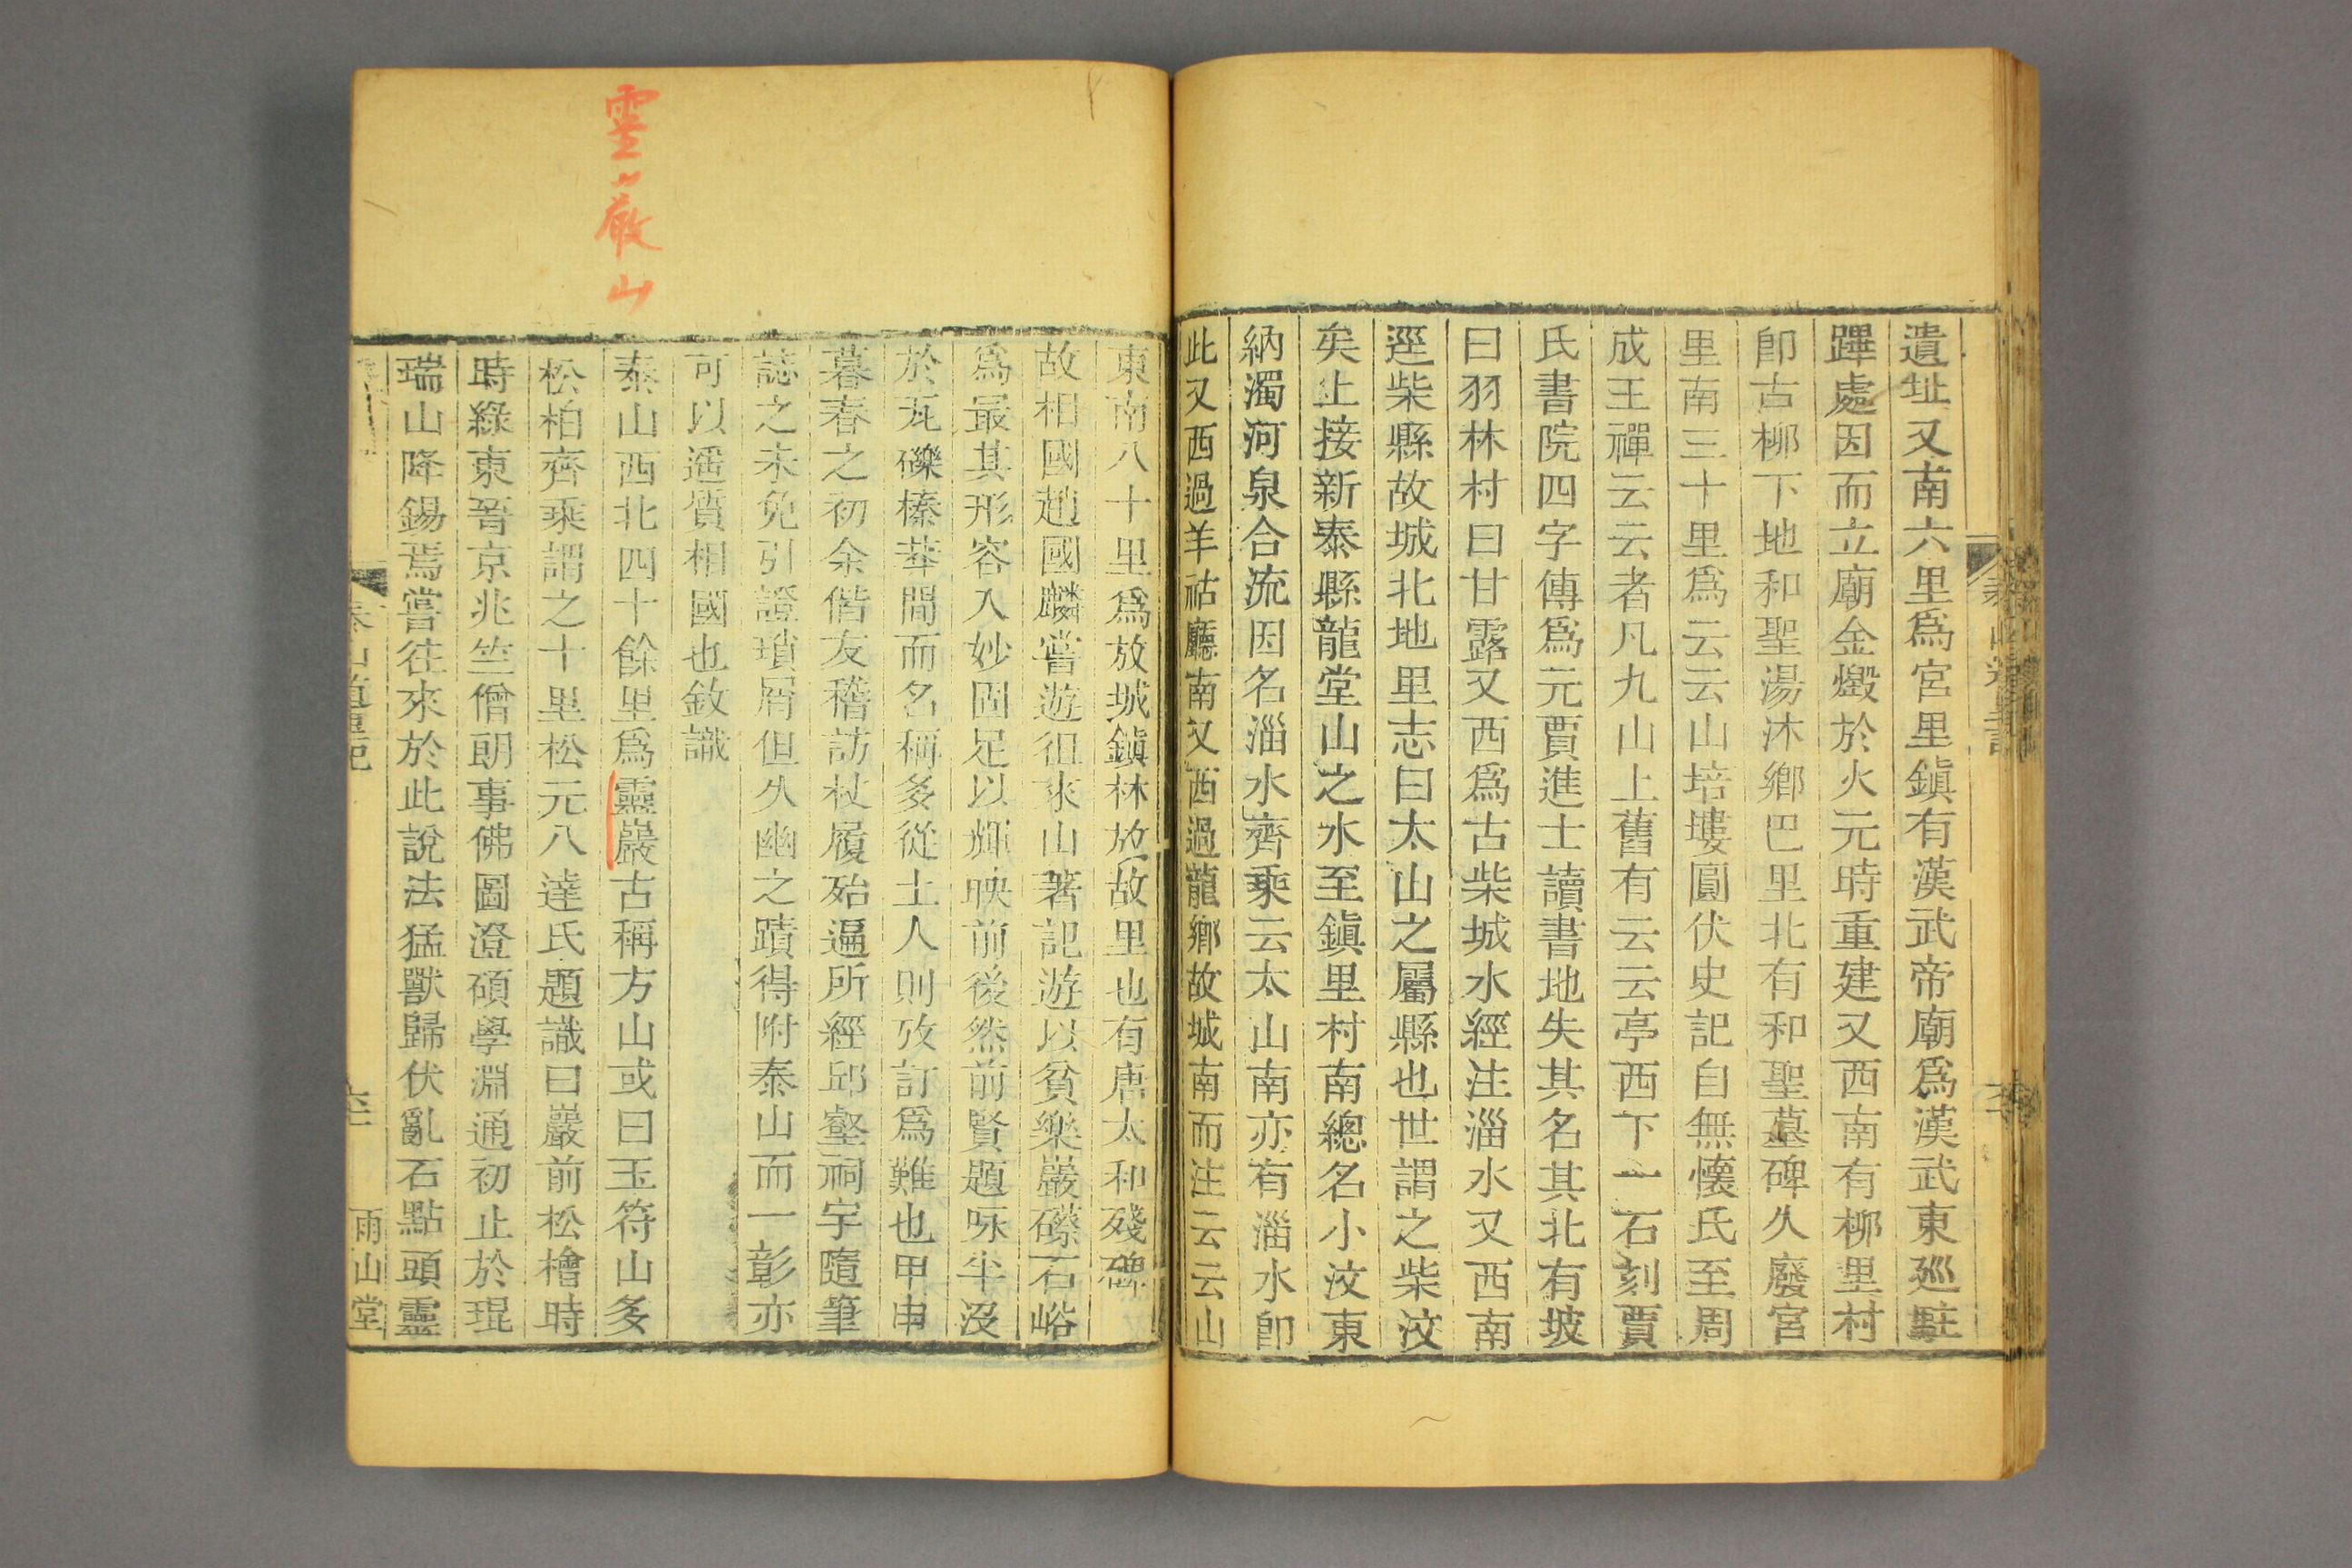 遺址又南六里爲宮里鎭有漢武帝廟爲漢武東巡駐
蹕處因而立廟金燬於火元時重建又西南有柳里村
卽古柳下地和聖湯沐鄕巴里北有和聖墓碑久廢宮
里南三十里爲云云山培塿圓伏史記自無懷氏至周
成王禪云云者凡九山上舊有云云亭西下一石刻賈
氏書院四字傳爲元賈進士讀書地失其名其北有坡
曰羽林村曰甘露又西爲古柴城水經注淄水又西南
逕柴縣故城北地里志曰太山之屬縣也世謂之柴汶
矣上接新泰縣龍堂山之水至鎭里村南總名小汶東
納濁河泉合流因名淄水齊乘云太山南亦有淄水卽
此又西過羊祜廳南又西過龍鄕故城南而注云云山
東南八十里爲放城鎭林放故里也有唐太和殘碑
故相國趙國麟嘗遊徂來山著記遊以貧樂巖礤石峪
爲最其形容入妙固足以輝映前後然前賢題咏半沒
於瓦礫榛莽間而名稱多從土人則攷訂爲難也甲申
暮春之初余偕友稽訪杖履殆遍所經邱壑祠宇隨筆
誌之未免引證瑣屑但久幽之蹟得附泰山而一彰亦
可以遥質相國也敘識
泰山西北四十餘里爲靈巖古稱方山或曰玉符山多
松柏齊乘謂之十里松元八達氏題識曰巖前松檜時
時綠東晉京兆竺僧朗事佛圖澄碩學淵通初止於琨
瑞山降錫焉嘗往來於此說法猛獸歸伏亂石點頭靈
泰山道里記
雨山堂
靈巖山